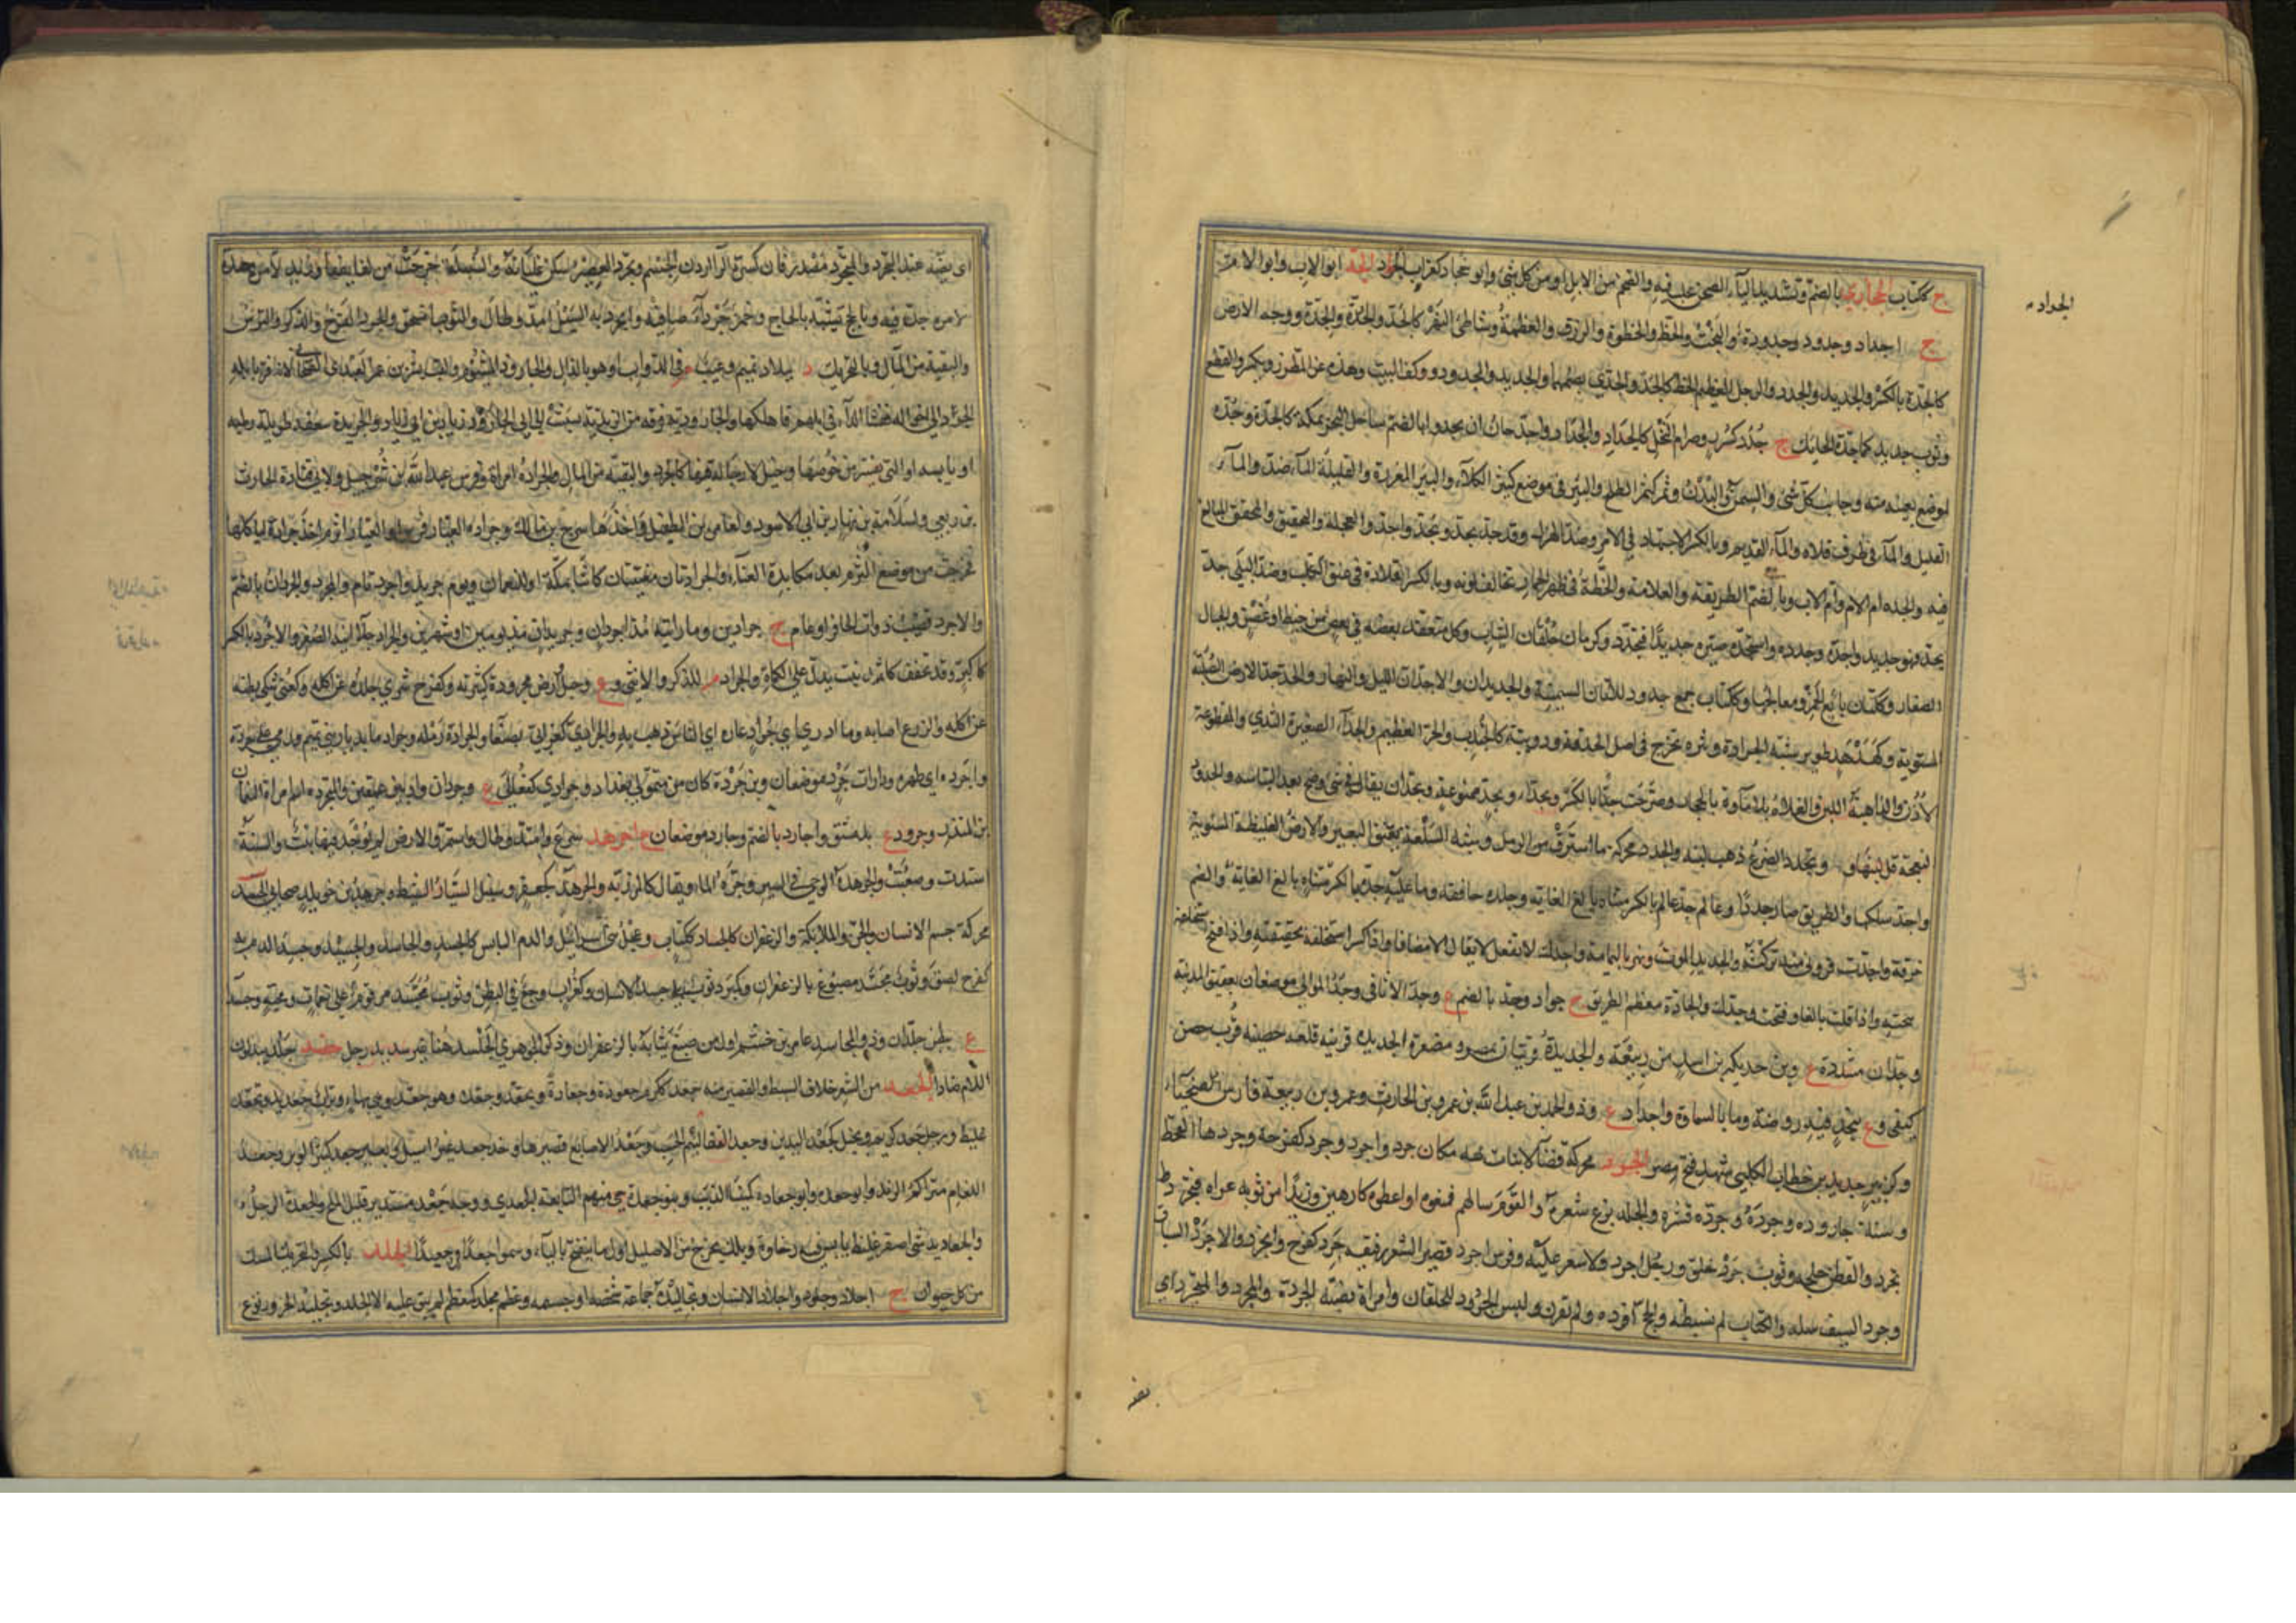 ج ككتاب الجحادي بالضم وتشديد الياء الضخم من الابل او من كل شئ وابو جخاد كغراب الجراد الجد ابو الاب وابو الام
ج اجداد وجدود وجدودة والبخت والحظ والحظوة والرزق والعظمة وشاطئ النهر كالجد والجدة والجدة ووجه الارض
كالجدة بالكسر والجديد والجدد والرجل العظيم الحظ كالجد والجدي بضمهما والجديد والمجدود ووكف البيت وهذه عن المطرز ويكسر والقطع
وثوب جديد كما جده الحائك ج جدد كسرر وصرام النخل كالجداد والجداد واجد حان ان يجد وبالضم ساحل البحر بمكة كالجدة وجدة
لموضع بعينه منه وجانب كل شئ والسمن والبدن وثمر كثمر الطلح والبئر في موضع كثير الكلاء والبئر المغزرة والقليلة الماء ضد والماء
القليل والماء في طرف فلاة والماء القديم وبالكسر الاجتهاد في الامر وضد الهزل وقد جد يجد ويجد واجد والعجلة والتحقيق والمحقق المبالغ
فيه والجده ام الام وام الاب وبالضم الطريقة والعلامة والخطة في ظهر الحمار تخالف لونه وبالكسر قلادة في عنق الكلب وضد البلى جد
يجد فهو جديد واجده وجدده واستجده صيره جديدا فتجدد وكرمان خلقان الثياب وكل متعقد بعضه في بعض من خيط او غصن والجبال
الصغار وككتان بائع الخمر ومعالجها وككتاب جمع جدود للاتان السمينة والجديدان والاجدان الليل والنهار والجدجد الارض الصلبة
المستوية وكهدهد طوير شبه الجرادة وبثرة تخرج في اصل الحدقة ودويبة كالجندب والحر العظيم والجداء الصغيرة الثدي والمقطوعة
الاذن والذاهبة اللبن والفلاة بلا ماء وة بالحجاز وصرحت جداء بالكسر وبجداء وبجد ممنوعة وبجدان يقال في شئ وضح بعد التباسه والجدود
النعجة قل لبنها و وتجدد الضرع ذهب لبنه والجدد محركة ما استرق من الرمل وشبه السلعة بعنق البعير والارض الغليظة المستوية
واجد سلكها والطريق صار جددا وعالم جد عالم بالكسر متناه بالغ الغاية وجاده حاققه وما عليه جدة بالكسر
خرقة واجدت قروني منه تركته والجديد الموت ونهر باليمامة واجدك لا تفعل لا يقال الا مضافا واذا كسر استحلفه بحقيقته واذا فتح استحلفه
ببخته واذا قلت بالواو فتحت وجدك والجادة معظم الطريق ج جواد وجد بالضم ع وجد الاثافي وجد الموالي موضعان بعقيق المدينة
وجدان مشددة ع وبن جديلة بن اسد من ربيعة والجديدة قريتان بمصر ومصغرة الجديدة قرينة قلعة حصينة قرب حصن
كيفى وع بنجد فيه روضة وماء بالسماوة واجداد ع وذو الجدين عبد الله بن عمرو بن الحارث وعمرو بن ربيعة فارس الضحياء
وكزبير جديد بن خطاب الكلبي شهد فتح مصر الجرد محركة فضاء لا نبات فيه مكان جرد واجرد وجرد كفرح وجردها القحط
وسنة جارودة وجرده وجرده قشره والجلد نزع شعره والقوم سالهم فمنعوه او اعطوه كارهين وزيدا من ثوبه عراه فتجرد
تجرد والقطن حلجه وثوب جرد خلق ورجل اجرد ولا شعر عليه وفرس اجرد قصير الشعر رقيقه جرد كفرح وانجرد والاجرد السباق
وجرد السيف سله والكتاب لم يضبطه والحج افرده ولم يقرن ولبس الجرود للخلقان وامراة بضة الجردة والمجرد والمتجرد اي
الجراده
بضه
اي بضة عند التجرد والمتجرد مصدر فان كسرت الراء اردت الجسم وتجرد العصير سكن غليانه والسنبلة خرجت من لفائفها وزيد لامره جد
لامره جد فيه وبالحج تشبه بالحاج وخمر جرداء صافية وانجرد به السيل امتد وطال والثوب انسحق والجرد الفرج والذكر والترس
والبقية من المال وبالتحريك د ببلاد تميم وعيب م في الدواب او هو بالذال والجارود المشؤوم ولقب بشر بن عمرو العبدي الصحابي لانه فر بابله
الجرد الى اخواله ففشا الداء في ابلهم فاهلكها والجارودية فرقة من الزيدية نسبت الى ابي الجارود زياد بن ابي زياد والجريدة سعفة طويلة رطبة
او يابسة او التي يقشر من خوصها وخيل لا رجالة فيها كالجرد والبقية من المال والجرادة امراة وفرس عبد الله بن شرحبيل ولابي قتادة الحارث
بن ربعي ولسلامة بن نهار بن ابي الاسود ولعامر بن الطفيل واخذها سرح بن مالك وجرادة العيار فرس او العيار اثرم اخذ جرادة لياكلها
فخرجت من موضع الثرم بعد مكابدة العناء والجرادتان مغنيتان كانتا بمكة او للنعمان ويوم جريد واجرد تام والمجرد والجردان بالضم
والاجرد قضيب ذوات الحافر او عام ج جرادين وما رايته مذ اجردان وجريدان مذ يومين او شهرين والجراد جلاء انية الصفر والاجرد بالكسر
كاكبر وقد تخفف كاثمد نبت يدل على الكماة والجراد م للذكر والانثى وع وجبل وارض مجرودة كثيرته وكفرح شري جلده عن اكله وكعني شكى بطنه
عن اكله والزرع اصابه وما ادري اي جراد عاره اي الناس ذهب به والجرادي كغرابي ة بصنعاء والجرادة رملة وجراد ماء بديار بني تميم
وانجردة اي ظهره ودارات جرد موضعان وبن جردة كان من متمولي بغداد وجرادى كفعالى ع وجردان واد بين عمقين والمتجردة اسم امراة النعمان
بن المنذر وجرود ع بدمشق واجارد بالضم وجارد موضعان اجرهد اسرع وامتد وطال واستمر والارض لم يوجد فيها نبت والسنة
اشتدت وصعبت والجرهدة الوحى في السير وجرة الماء ويقال كالمرزبة والجرهد كجعفر وسنبل السيار النشيط وجرهد بن خويلد صحابي الجسد
محركة جسم الانسان والجن والملائكة والزعفران كالجساد ككتاب وعجل بني اسرائيل والدم اليابس كالجسد والجاسد والجسيد وجسد الدم به
كفرح لصق وثوب مجسد مصبوغ بالزعفران وكمبرد ثوب يلي جسد الانسان وكغراب وجع في البطن وصوت مجسد مرقوم على نغمات ومحنة وجسداء
ع ببطن جلذان وذو المجاسد عامر بن جشم اول من صبغ ثيابه بالزعفران وذكر الجوهري الجلسد هنا غير سديد رجل جضد بجلد يبدلون
اللام ضادا الجعد من الشعر خلاف السبط او القصير منه جعد ككرم جعودة وجعادة وتجعد وجعده وهو جعد وهي بهاء وتراب جعد ندي وتجعد
غليظ ورجل جعد كريم وبخيل كجعد اليدين وجعد القفا لئيم الحسب وجعد الاصابع قصيرها وخد جعد غير اسيل وبعير جعد كثير الوبر وجعد
اللغام متراكم الزبد وابو جعدة وابو جعادة كنية الذئب وبنو جعدة حي منهم النابغة الجعدي ووجه جعد مستدير قليل الملح والجعدة الرخل
والجعاديد شئ اصفر غليظ يابس فيه رخاوة وبلل يخرج من الاحليل اول ما ينفتح باللباء وسموا جعدا وجعيدا الجلد بالكسر والتحريك المسك
من كل حيوان ج اجلاد وجلود واجلاد الانسان وتجاليده جماعة شخصه او جسمه وعظم مجلد كمعظم لم يبق عليه الا الجلد وتجليد الجزور نزع